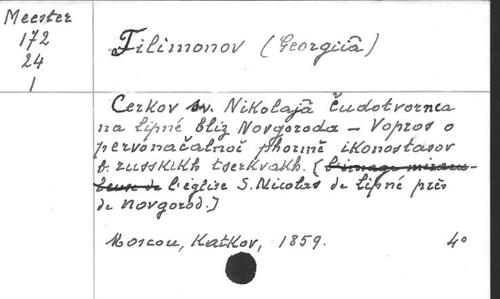 Meester
172
24
1
Filimonov (Georgiiâ)
Cerkov sv. Nikolajâ Čudotvornca
na Lipné bliz Novgoroda – Vopros o
pervonačalnoĭ phormě ikonostasov
b. russkikh tserkvakh. (L'image miracu-
leuse de l'église S. Nicolas de Lipné près
de Novgorod.)
Moscou, Katkov, 1859. 4°